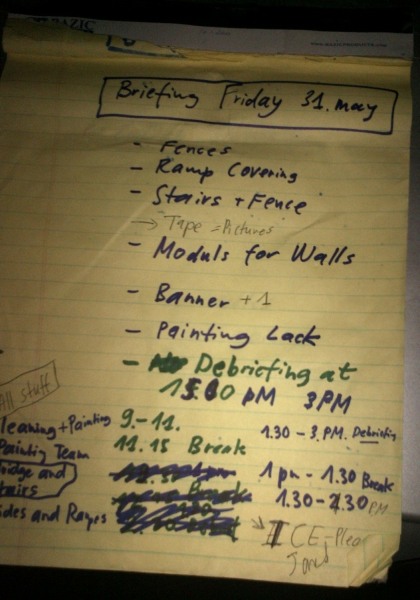 Briefing Friday 31. may
- Fences
- Ramp Covering
- Stairs + Fence
→ Tape = Pictures
- Moduls for Walls
- Banner +1
- Painting Lack
- Debriefing at
15:00 pM 3PM
All stuff
leaning + Painting
Painting Team
ridge and
tairs
ides and Ramps
9.-11.
11.15 Break
Break
1.30 - 3.PM. Debriefing
1 pm - 1.30 Break
1.30 - 2.30 PM
ICE - Pleas